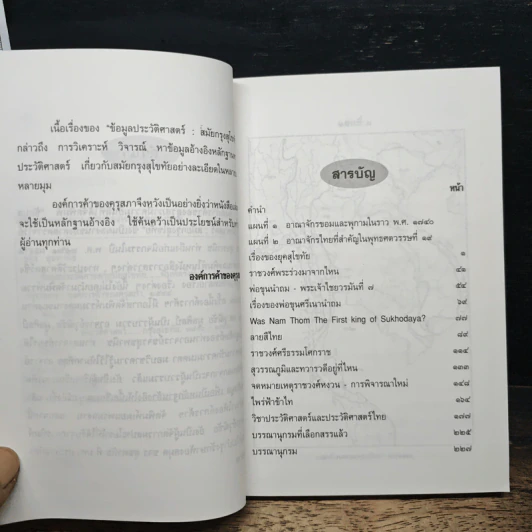 เนื้อเรื่องของ "ข้อมูลประวัติศาสตร์ : สมัยกรุงสุโข
กล่าวถึง การวิเคราะห์ วิจารณ์ หาข้อมูลอ้างอิงหลักฐาน
ประวัติศาสตร์ เกี่ยวกับสมัยกรุงสุโขทัยอย่างละเอียดในหลาย
หลายมุม
องค์การค้าของคุรุสภาจึงหวังเป็นอย่างยิ่งว่าหนังสือ
จะใช้เป็นหลักฐานอ้างอิง ใช้ค้นคว้าเป็นประโยชน์สำหรับ
ผู้อ่านทุกท่าน
องค์การค้าของคุรุส
สารบัญ
หน้า
คำนำ
แผนที่ ๑ อาณาจักรขอมและพุกามในราว พ.ศ. ๑๗๔๐
แผนที่ ๒ อาณาจักรไทยที่สำคัญในพุทธศตวรรษที่ ๑๙
เรื่องของยุคสุโขทัย ๑
ราชวงศ์พระร่วงมาจากไหน ๔๑
พ่อขุนนำถม - พระเจ้าไชยวรมันที่ ๗ ๕๔
เรื่องของพ่อขุนศรีนาวนำถม ๖๙
Was Nam Thom The First king of Sukhodaya? ๗๗
ลายสือไทย ๘๙
ราชวงศ์ศรีธรรมโศกราช ๑๑๕
สุวรรณภูมิและทวารวดีอยู่ที่ไหน ๑๓๓
จดหมายเหตุราชวงศ์หงวน - การพิจารณาใหม่ ๑๔๘
ไพร่ฟ้าข้าไท ๑๖๔
วิชาประวัติศาสตร์และประวัติศาสตร์ไทย ๑๗๗
บรรณานุกรมที่เลือกสรรแล้ว ๒๒๕
บรรณานุกรม ๒๒๗